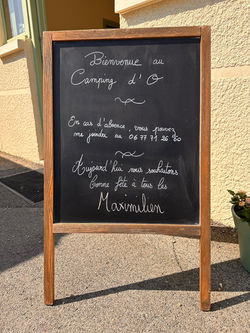 Bienvenue au
Camping d'O
En cas d'absence, vous pouvez
me joindre au 06 77 71 26 30
Aujourd'hui nous souhaitons
bonne fête à tous les
Maximilien